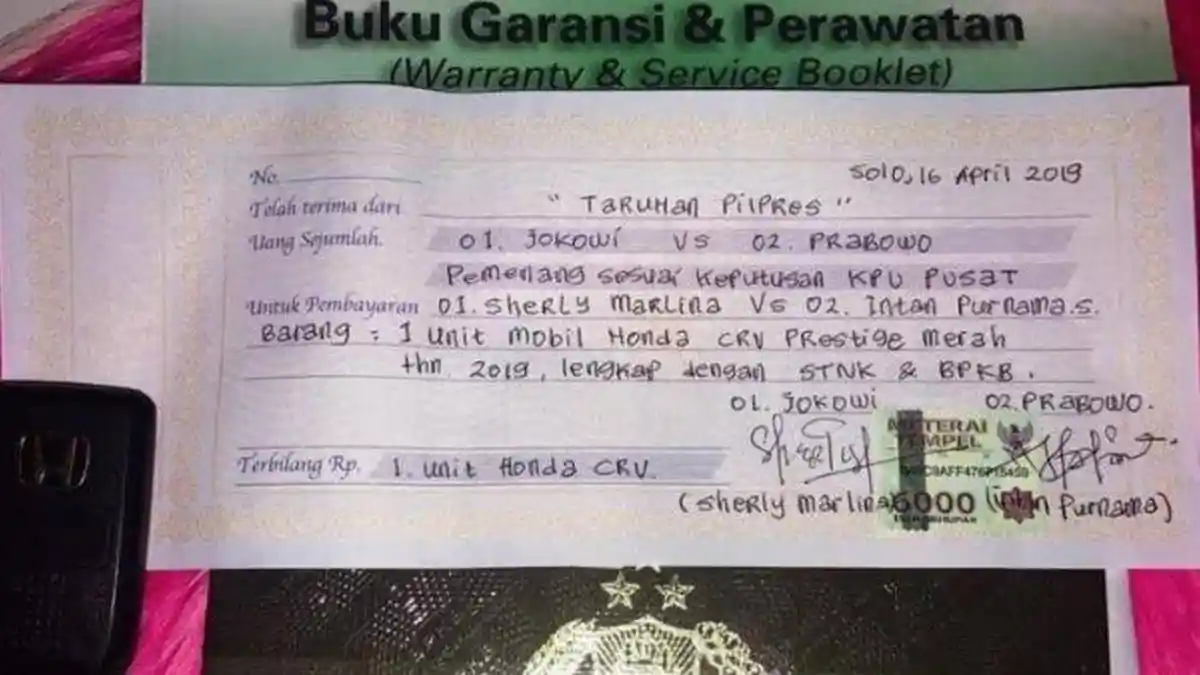 Buku Garansi & Perawatan
(Warranty & Service Booklet)
No.
Solo, 16 April 2019
Telah terima dari
" Taruhan Pilpres "
Uang Sejumlah.
01. Jokowi Vs 02. Prabowo
Pemenang sesuai Keputusan KPU PUSAT
Untuk Pembayaran 01. Sherly Marlina Vs 02. Intan Purnama.S.
Barang : 1 Unit Mobil Honda CRV Prestige Merah
thn 2019, lengkap dengan STNK & BPKB.
01. Jokowi 02. Prabowo.
METERAI
TEMPEL
Terbilang Rp. 1. Unit Honda CRV.
6000
(Sherly Marlina) (Intan Purnama)